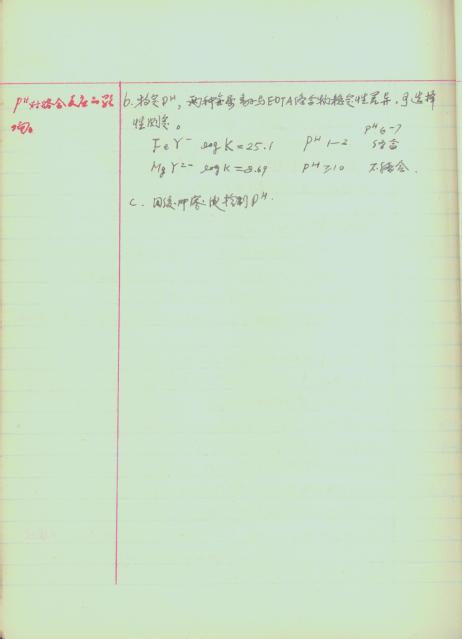 PH对络合反应的影
响。
b. 控定PH, 两种金属离子与EDTA络合物稳定性差异, 可选择
性滴定。
PH 6-7
FeY⁻ log K = 25.1 PH 1-2 络合
MgY²⁻ log K = 8.69 PH ≥ 10 不络合.
c. 用缓冲溶液控制PH.